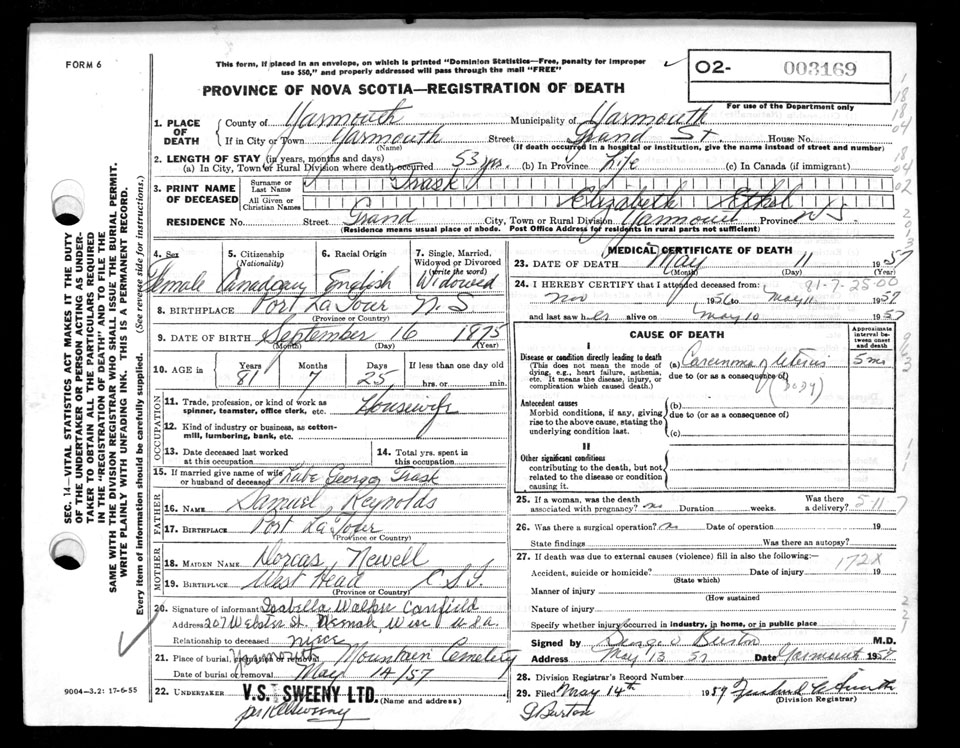 FORM 6
This form, if placed in an envelope, on which is printed "Dominion Statistics—Free, penalty for improper
use $50," and properly addressed will pass through the mail "FREE"
PROVINCE OF NOVA SCOTIA—REGISTRATION OF DEATH
02- 003169
For use of the Department only
1. PLACE OF DEATH
County of Yarmouth Municipality of Yarmouth
If in City or Town Yarmouth Street Grand St. House No.
(Name) (If death occurred in a hospital or institution, give the name instead of street and number)
2. LENGTH OF STAY (in years, months and days)
(a) In City, Town or Rural Division where death occurred 53 yrs. (b) In Province Life (c) In Canada (if immigrant)
3. PRINT NAME OF DECEASED
Surname or Last Name Trask
All Given or Christian Names Elizabeth Ethel
RESIDENCE No. Street Grand City, Town or Rural Division Yarmouth Province N.S.
(Residence means usual place of abode. Post Office Address for residents in rural parts not sufficient)
4. Sex Female
5. Citizenship (Nationality) Canadian
6. Racial Origin English
7. Single, Married, Widowed or Divorced (write the word) Widowed
8. BIRTHPLACE Port La Tour N.S
(Province or Country)
9. DATE OF BIRTH September 16 1875
(Month) (Day) (Year)
10. AGE in Years 81 Months 7 Days 25 If less than one day old hrs. or min.
OCCUPATION
11. Trade, profession, or kind of work as spinner, teamster, office clerk, etc. Housewife
12. Kind of industry or business, as cotton-mill, lumbering, bank, etc.
13. Date deceased last worked at this occupation
14. Total yrs. spent in this occupation
15. If married give name of wife or husband of deceased George Trask
FATHER
16. NAME Samuel Reynolds
17. BIRTHPLACE Port La Tour
(Province or Country)
MOTHER
18. MAIDEN NAME Dorcas Newell
19. BIRTHPLACE West Head C.S.I.
(Province or Country)
20. Signature of informant Isabella Walker Canfield
Address 207 Webster St. Neenah, Wisc U.S.a.
Relationship to deceased niece
21. Place of burial, cremation or removal Yarmouth, Mountain Cemetery
Date of burial or removal May 14/57
22. UNDERTAKER V.S. SWEENY LTD. (Name and address)
9004—3.2: 17-6-55
SEC. 14—VITAL STATISTICS ACT MAKES IT THE DUTY
OF THE UNDERTAKER OR PERSON ACTING AS UNDER-
TAKER TO OBTAIN ALL THE PARTICULARS REQUIRED
IN THE "REGISTRATION OF DEATH" AND TO FILE THE
SAME WITH THE DIVISION REGISTRAR WHO SHALL ISSUE THE BURIAL PERMIT.
WRITE PLAINLY WITH UNFADING INK. THIS IS A PERMANENT RECORD.
Every item of information should be carefully supplied. (See reverse side for instructions.)
MEDICAL CERTIFICATE OF DEATH
23. DATE OF DEATH May 11 1957
(Month) (Day) (Year)
24. I HEREBY CERTIFY that I attended deceased from: 81-7-25-00
Nov 1956 to May 11 1957
and last saw her alive on May 10 1957
CAUSE OF DEATH
Approximate interval between onset and death
I
Disease or condition directly leading to death (a) Carcinoma of Uterus 5 mo
(This does not mean the mode of dying, e.g., heart failure, asthenia, etc. It means the disease, injury, or complication which caused death.)
due to (or as a consequence of) (body)
Antecedent causes (b)
Morbid conditions, if any, giving rise to the above cause, stating the underlying condition last.
due to (or as a consequence of)
(c)
II
Other significant conditions
contributing to the death, but not related to the disease or condition causing it.
25. If a woman, was the death associated with pregnancy? no Duration weeks. Was there a delivery? 5-11 7
26. Was there a surgical operation? no Date of operation 19
State findings Was there an autopsy?
27. If death was due to external causes (violence) fill in also the following:— 172X
Accident, suicide or homicide? Date of injury 19
(State which)
Manner of injury
(How sustained
Nature of injury
Specify whether injury occurred in industry, in home, or in public place
Signed by George V Burton M.D.
Address May 13 57 Date Yarmouth 1957
28. Division Registrar's Record Number
29. Filed May 14th 1957
(Division Registrar)
G Burton